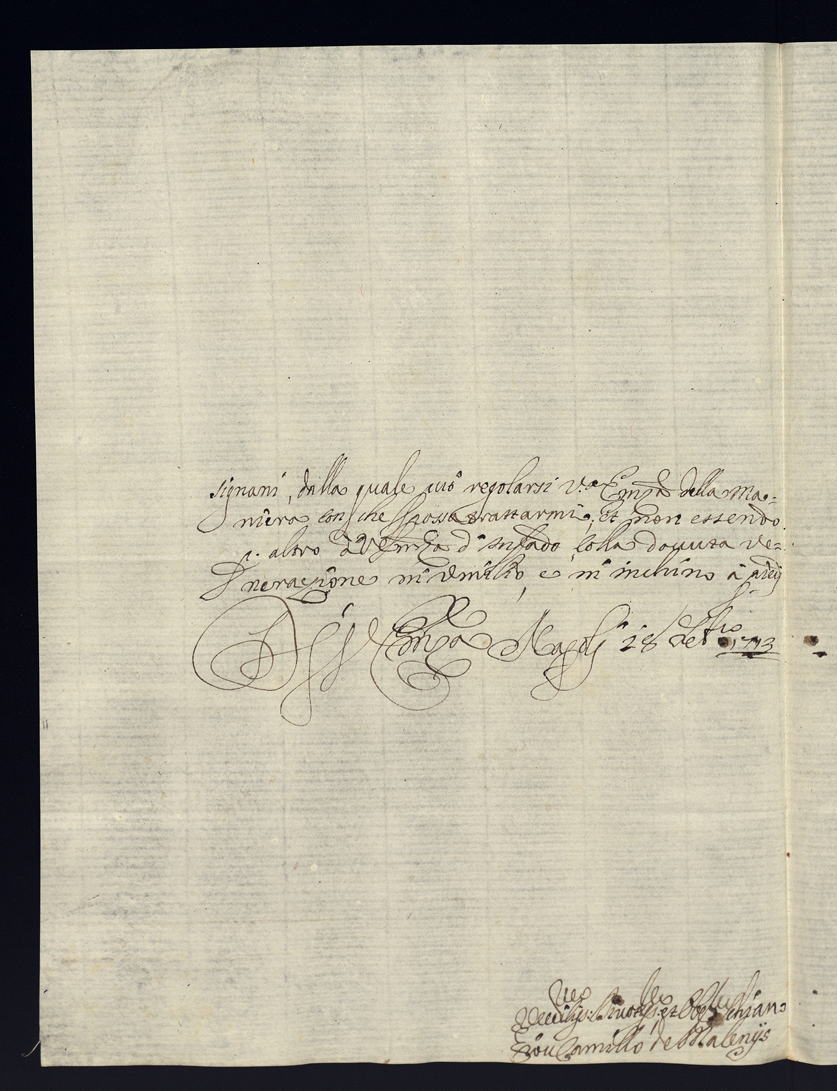 signani, dalla quale può regolarsi V.a Em.za della ma=
niera con che possa trattarmi, et non essendo
p. altro à V. Em.za d'infado, colla douuta ve=
nerazione m'vmilio, e m'inchino à piedi
Di V. Em.za Napoli 28 Set. 1713
Camillo de